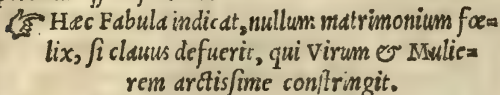 ☞ Hæc Fabula indicat, nullum matrimonium fœ=
lix, ſi clauus defuerit, qui Virum & Mulie=
rem arctiſsime conſtringit.